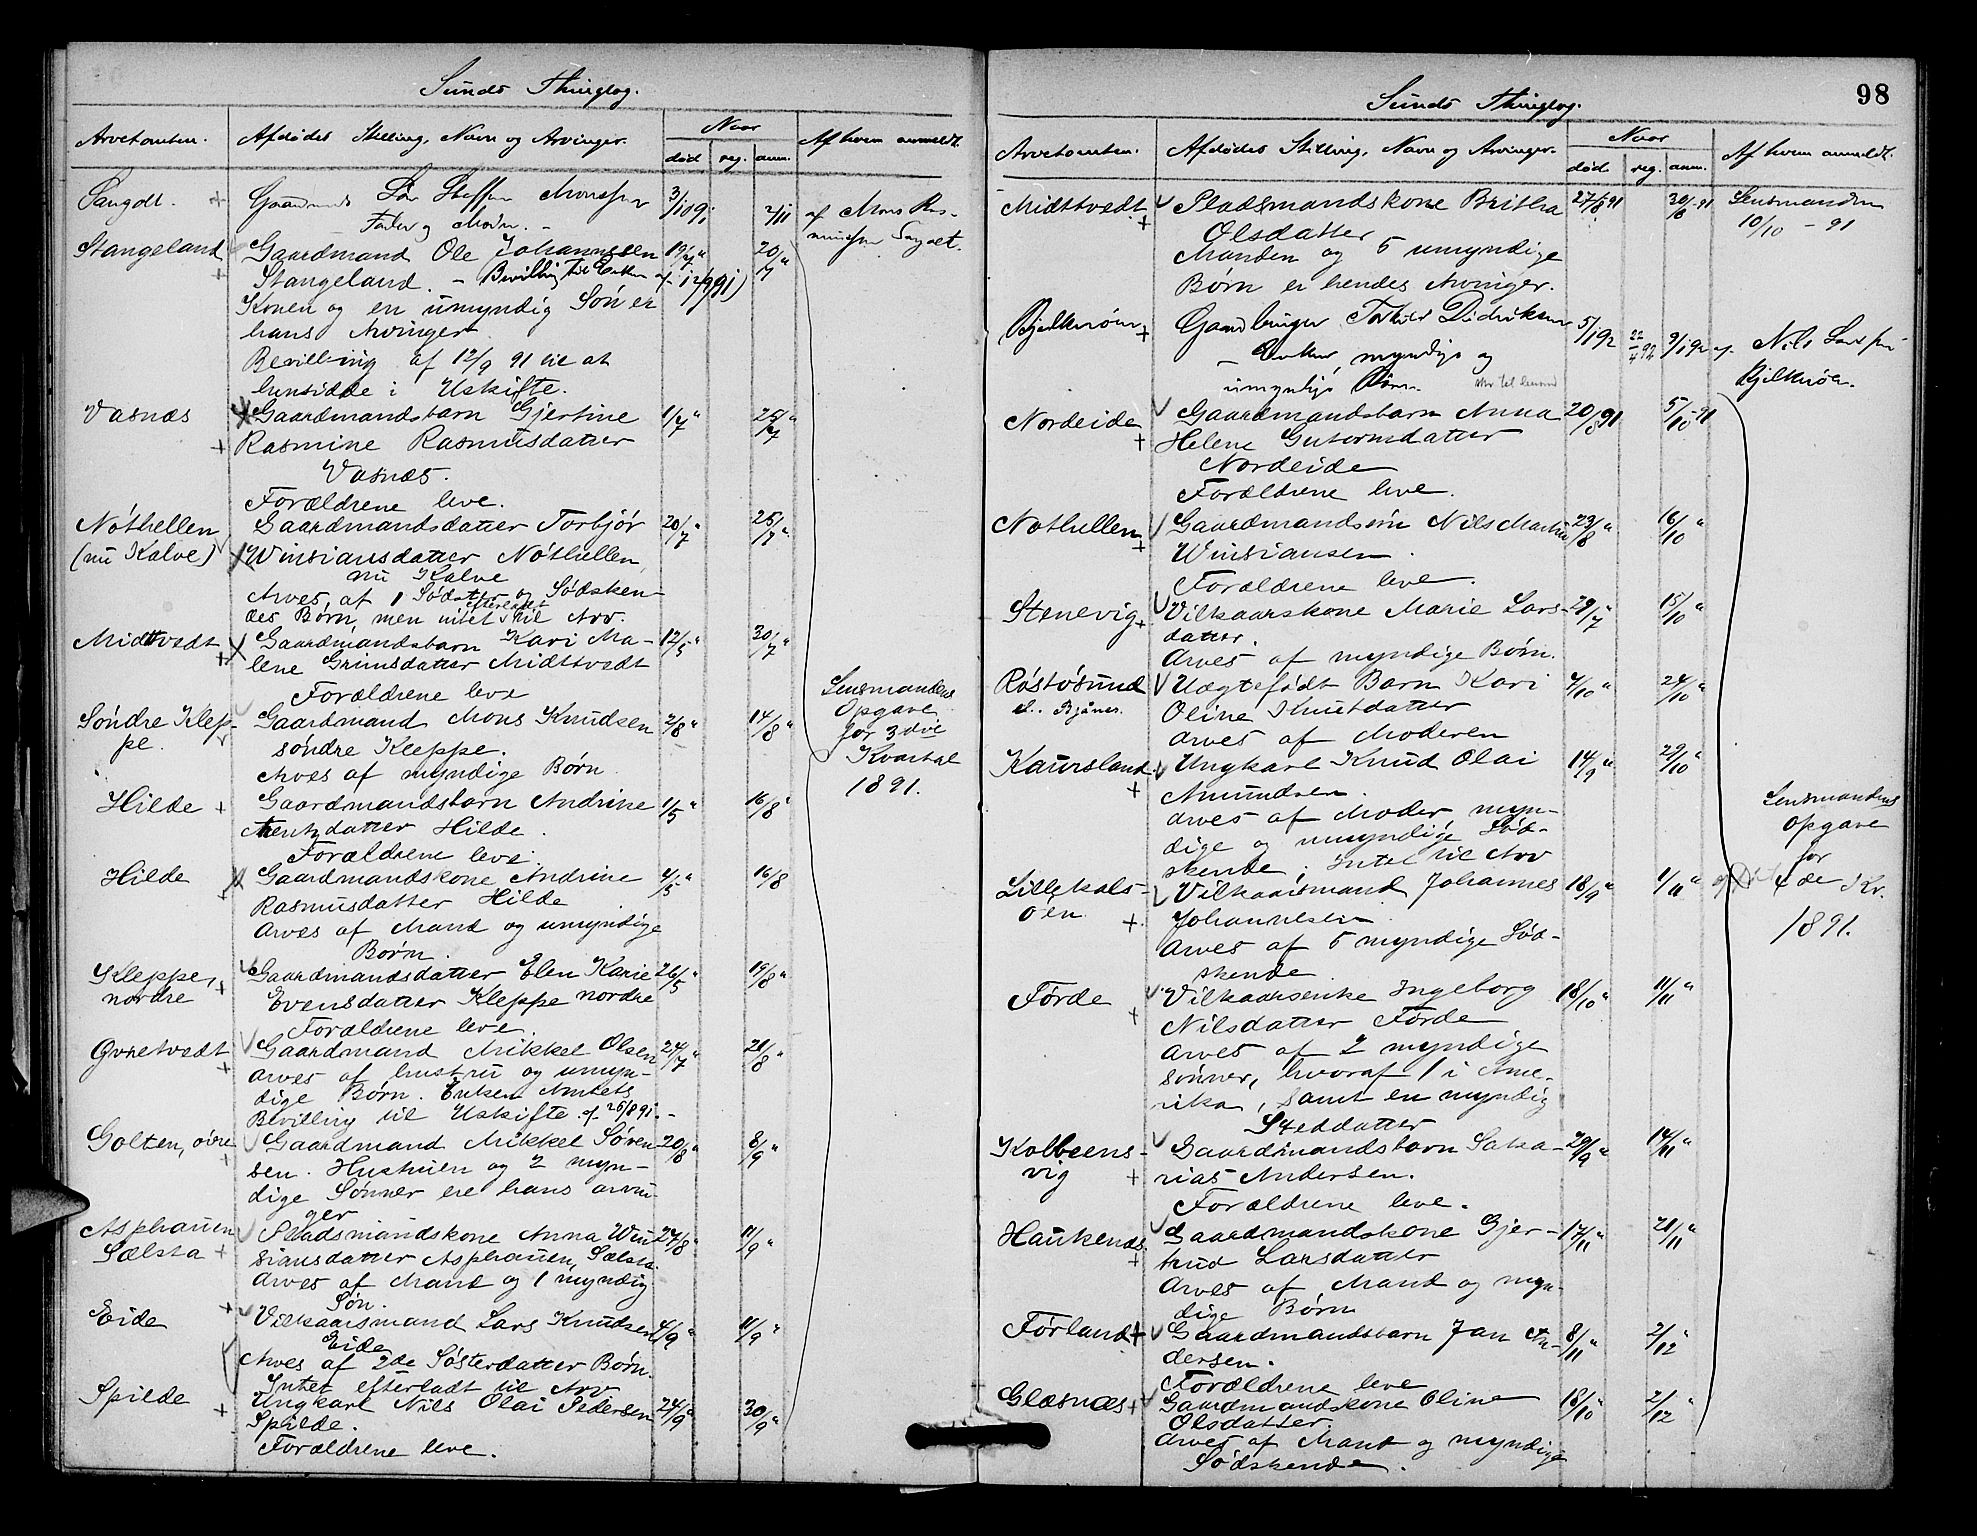 Sunds Thinglag.
Arvetomten. Afdødes Stilling, Navn og Arvinger. Naar Af hvem anmeldt.
død reg. anm.
Gaardmands Søn Steffen Monssen 3/10 91 2/11 af Mons Ras-
Fader og Moder. -
Stangeland Gaardmand Ole Johannessen 19/7 " 20/7 "
Stangeland. - Bevilling til Enken af 12/9 91)
Konen og en umyndig Søn er
hans Arvinger
Bevilling af 12/9 91 til at
hensidde i Uskifte.
Vasnæs Gaardmandsbarn Gjertine 1/7 " 25/7 "
Rasmine Rasmusdatter
Vasnæs.
Forældrene leve.
Nøthellen Gaardmandsdatter Torbjør 20/7 " 25/7 "
(nu Kalve) Winsiansdatter Nøthellen,
nu Kalve
Arves af 1 Sødster og Sødsken-
des Børn, men intet efterladt til Arv.
Midtvedt Gaardmandsbarn Kari Ma- 12/5 " 30/7 "
lene Grimsdatter Midtvedt
Forældrene leve
Søndre Klep- Gaardmand Mons Knudsen 2/8 " 14/8 "
pe. søndre Kleppe.
Arves af myndige Børn.
Lensmandens
Opgave
for 3die
Kvartal
1891.
Hilde Gaardmandsbarn Andrine 1/5 " 16/8 "
datter Hilde.
Forældrene leve.
Hilde Gaardmandskone Andrine 4/5 " 16/8
Rasmusdatter Hilde
Arves af Mand og umyndige
Børn.
Kleppe, Gaardmandsdatter Elen Karie 26/5 " 19/8 "
nordre Evensdatter Kleppe nordre
Forældrene leve.
Øvretvedt Gaardmand Mikkel Olsen 24/7 " 21/8 "
Arves af hustru og umyn-
dige Børn. Enken Amtets
Bevilling til Uskifte af 25/8 91. -
Golten, øvre Gaardmand Mikkel Søren- 20/8 " 8/9 "
sen. Hustruen og 2 myn-
dige Sønner ere hans arvin-
ger
Asphauen Pladsmandskone Anna Win 24/8 " 11/9 "
Sælsta siansdatter Asphauen, Sælsta.
Arves af Mand og 1 myndig
Søn.
Eide Vilkaarsmand Lars Knudsen 4/9 " 11/9 "
Eide
Arves af 2de Søsterdatter Børn.
Intet efterladt til Arv
Spilde Ungkarl Nils Olai Pedersen 24/9 " 30/9 "
Spilde.
Forældrene leve.
98
Sunds Thinglag.
Arvetomten. Afdødes Stilling, Navn og Arvinger. Naar Af hvem anmeldt.
død reg. anm.
Midttvedt Pladsmandskone Britha 27/8 91 30/8 91 Lensmanden
Olsdatter 10/10 - 91
Manden og 5 umyndige
Børn er hendes Arvinger.
Bjelkerøen Gaardbruger Torkild Didriksen 5/1 92 22/4 92 9/1 92 af Nils Larssen
- Enken, myndige og Bjelkerøen.
umyndige Børn.
Nordeide Gaardmandsbarn Anna 20/8 91 5/10 - 91
Helene Gutormsdatter
Nordeide
Forældrene leve.
Nøthellen Gaardmandssøn Nils Martin 23/8 " 16/10 "
Winsiansen.
Forældrene leve.
Stenevig Vilkaarskone Marie Lars- 29/7 " 15/10 "
datter.
Arves af myndige Børn.
Røstøsund Uægtefødt Barn Kari 4/10 " 24/10 "
Oline Knutdatter
Arves af Moderen
Kaursland Ungkarl Knud Olai 14/9 " 29/10 "
Amundsen.
Arves af Moder, myn-
dige og umyndige Sød-
skende; Intet til Arv
Lensmandens
Opgave
for
4de Kv.
1891.
Lillekals- Vilkaarsmand Johannes 18/9 " 1/11 "
øen. Johannesen.
Arves af 5 myndige Sød-
skende
Førde Vilkaarsenke Ingeborg 18/10 " 11/11 "
Nilsdatter Førde
Arves af 2 myndige
sønner, hvoraf 1 i Ame-
rika, samt en myndig
Steddatter
Kolbeens- Gaardmandsbarn Saka- 29/9 " 14/11 "
vig rias Andersen.
Forældrene leve.
Haukenæs Gaardmandskone Gjer- 17/11 " 21/11 "
trud Larsdatter
Arves af Mand og myn-
dige Børn
Førland Gaardmandsbarn Jan An- 8/11 " 2/12 "
dersen.
Forældrene leve
Glæsnæs Gaardmandskone Oline 18/10 " 2/12 "
Olsdatter.
Arves af Mand og myndige
Sødskende.